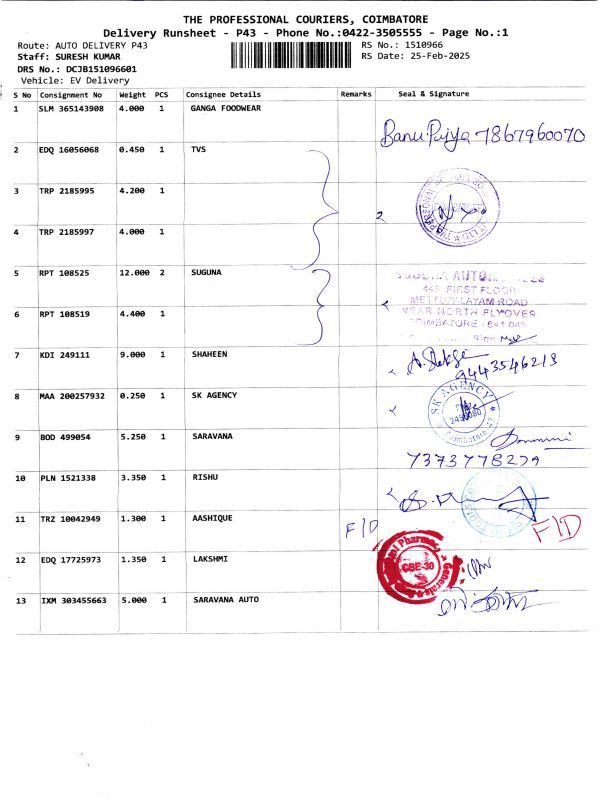 THE PROFESSIONAL COURIERS, COIMBATORE
Delivery Runsheet - P43 - Phone No.:0422-3505555 - Page No.:1
Route: AUTO DELIVERY P43 RS No.: 1510966
Staff: SURESH KUMAR RS Date: 25-Feb-2025
DRS No.: DCJB151096601
Vehicle: EV Delivery
S No Consignment No Weight PCS Consignee Details Remarks Seal & Signature
1 SLM 365143908 4.000 1 GANGA FOODWEAR
Banu Priya 7867960070
2 EDQ 16056068 0.450 1 TVS
3 TRP 2185995 4.200 1
4 TRP 2185997 4.000 1
5 RPT 108525 12.000 2 SUGUNA
445, FIRST FLOOR
METTUPALAYAM ROAD
6 RPT 108519 4.400 1 NEAR NORTH FLYOVER
COIMBATORE - 641 043
7 KDI 249111 9.000 1 SHAHEEN
9443546213
8 MAA 200257932 0.250 1 SK AGENCY SK AGENCY
Coimbatore
9 BOD 499054 5.250 1 SARAVANA
7373778279
10 PLN 1521338 3.350 1 RISHU
11 TRZ 10042949 1.300 1 AASHIQUE F/D F/D
12 EDQ 17725973 1.350 1 LAKSHMI CBE-30
13 IXM 303455663 5.000 1 SARAVANA AUTO